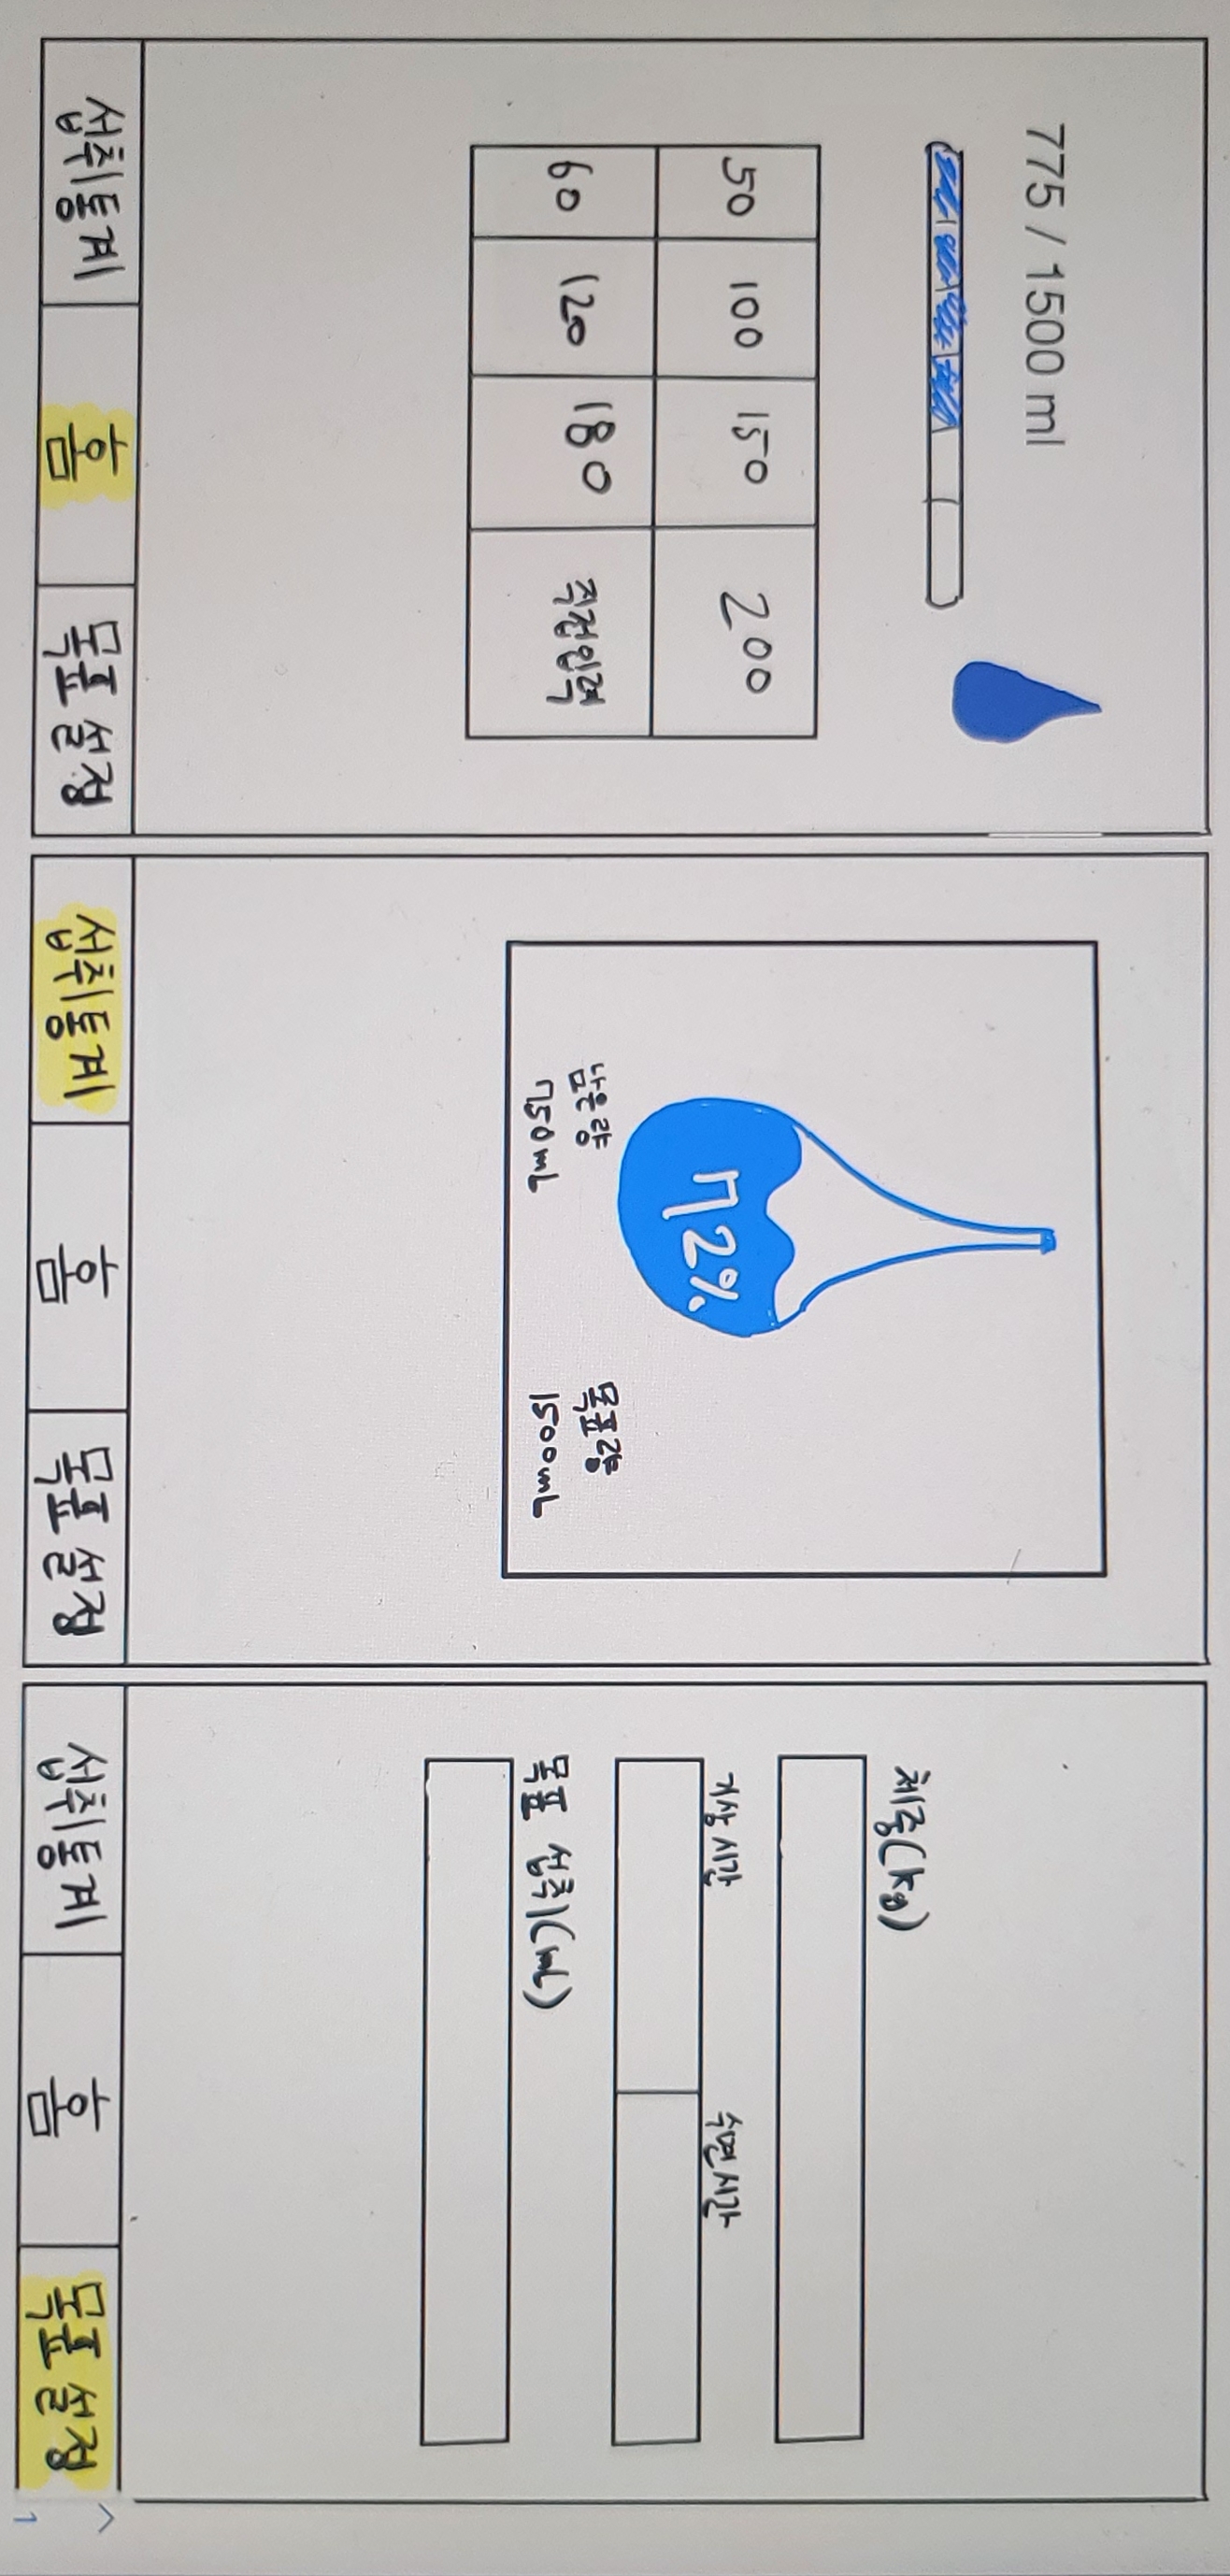 775 / 1500 ml
50 100 150 200
60 120 180 직접입력
섭취통계 홈 목표 설정
72%
남은량 목표량
750mL 1500mL
섭취통계 홈 목표 설정
체중(kg)
기상 시간 수면 시간
목표 섭취(mL)
섭취통계 홈 목표 설정
1